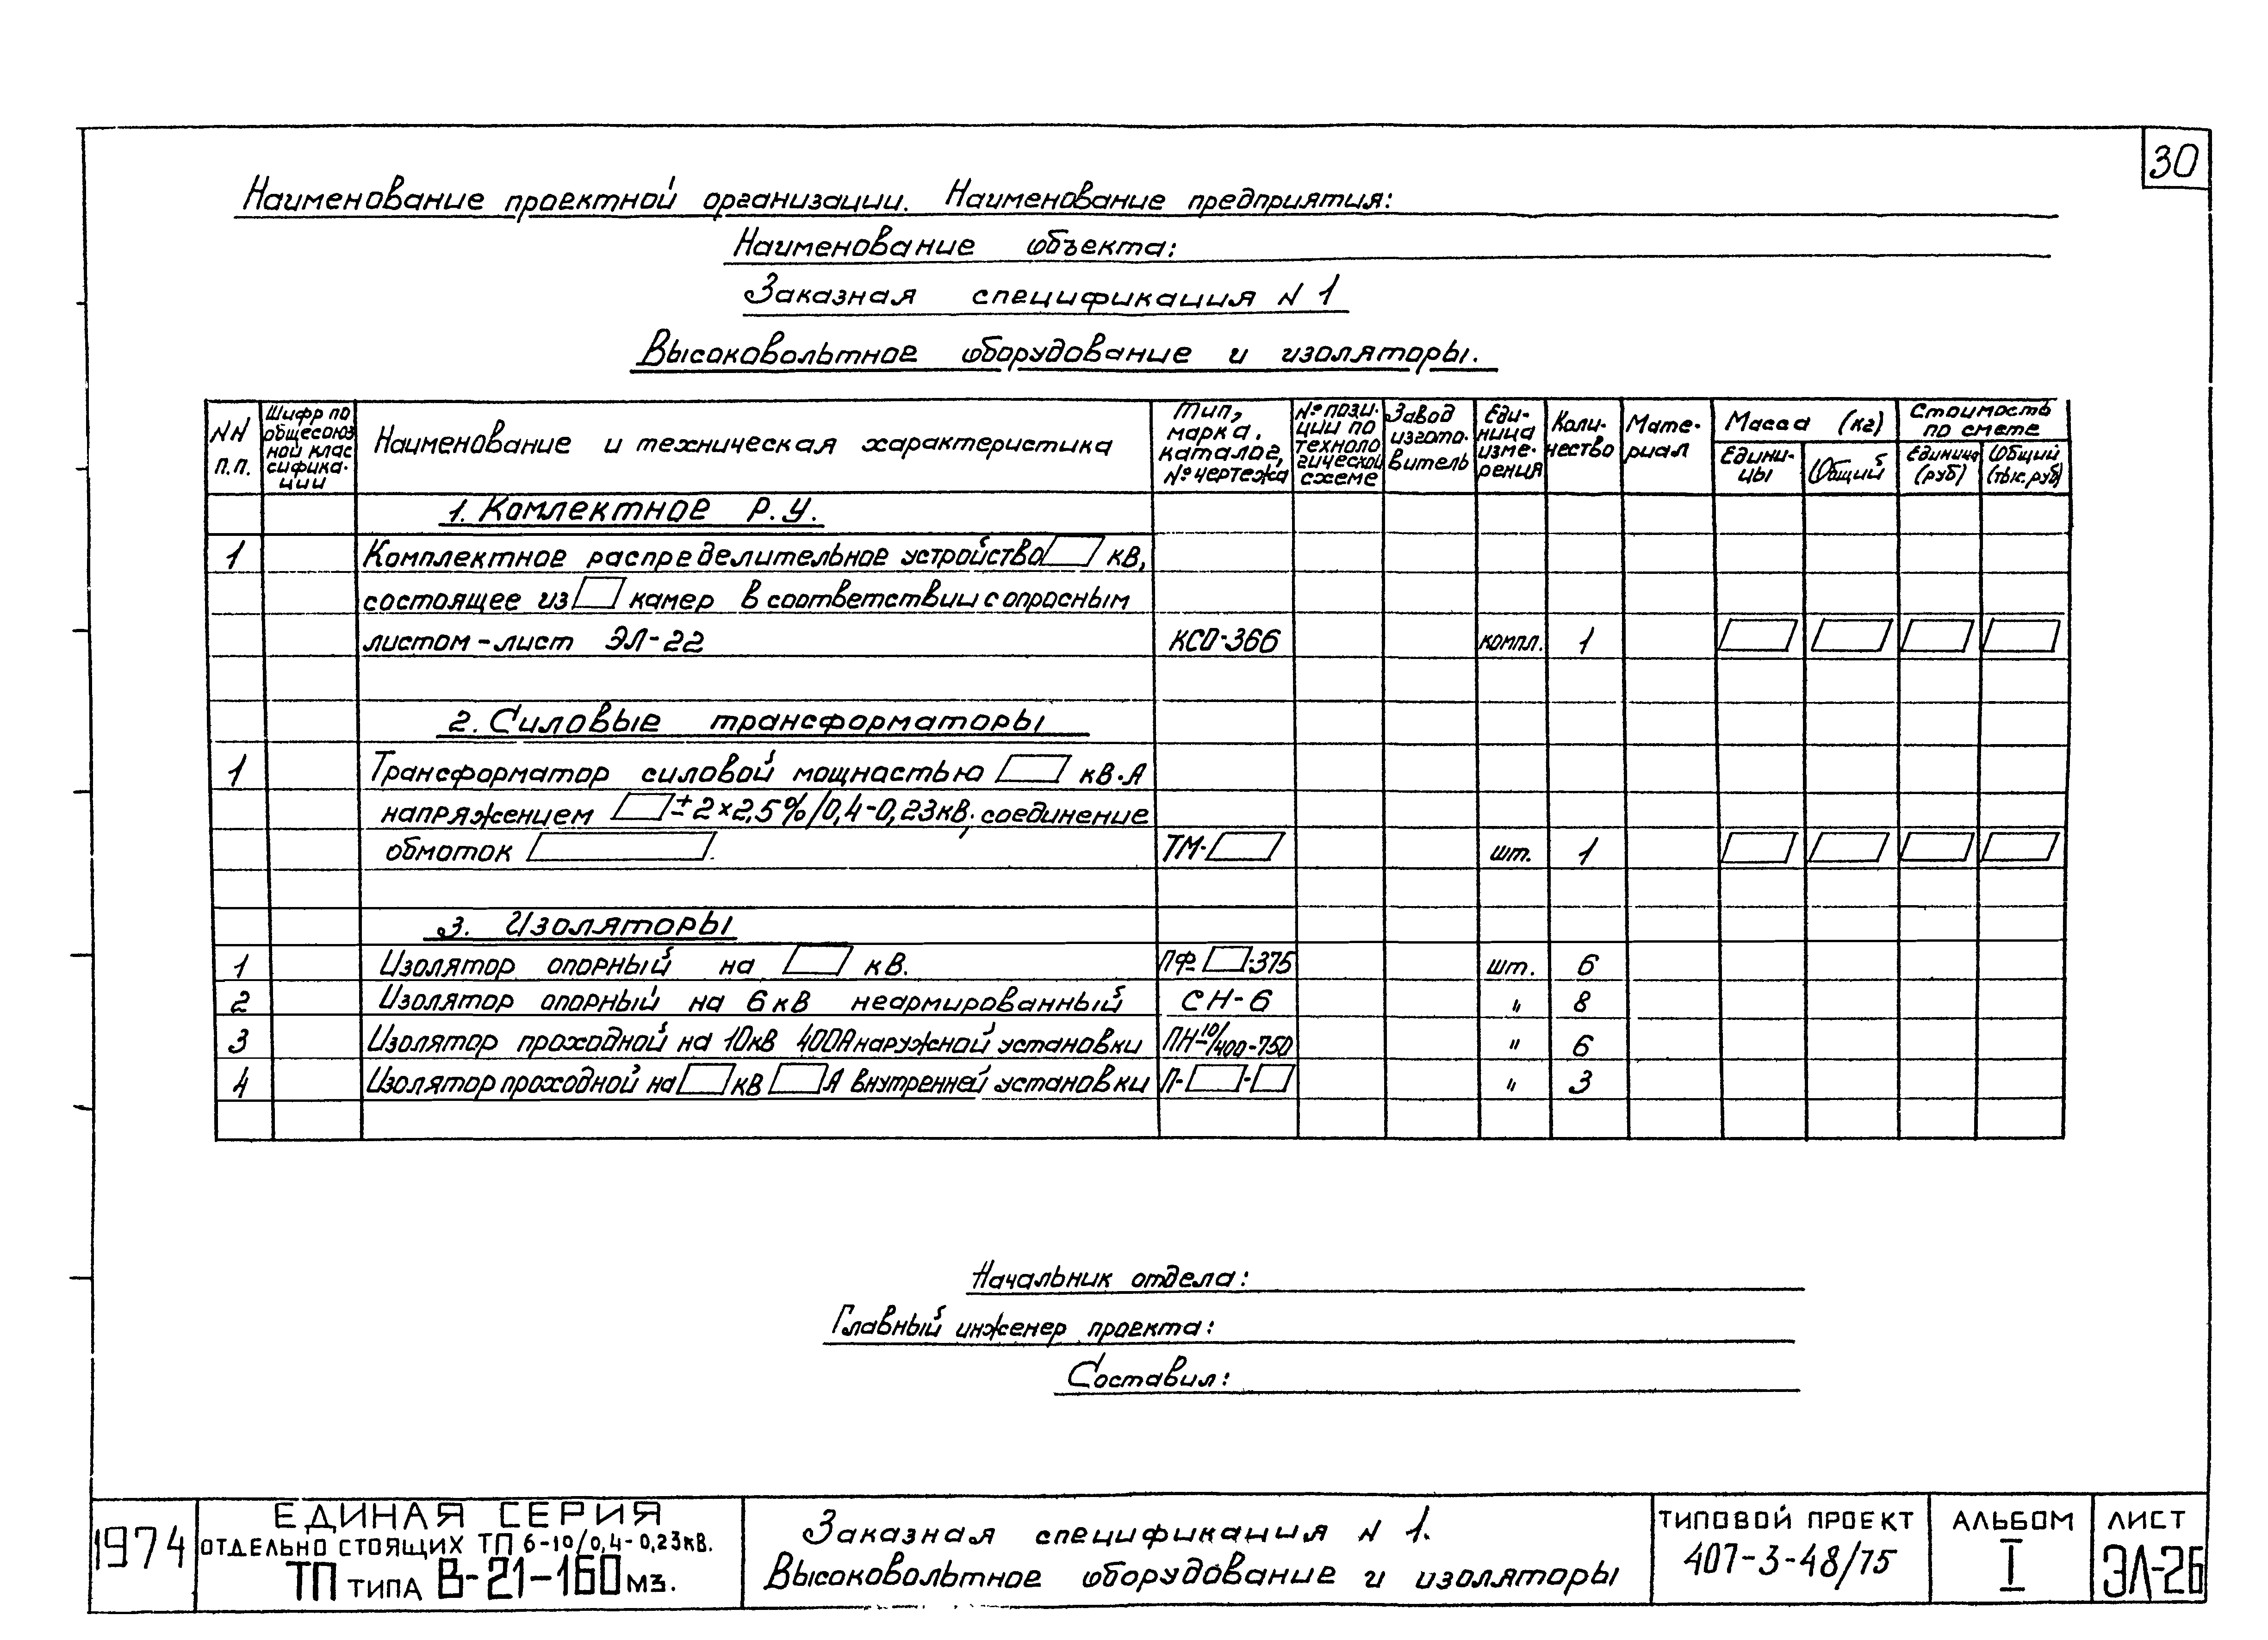 30
Наименование проектной организации. Наименование предприятия:
Наименование объекта:
Заказная спецификация N 1
Высоковольтное оборудование и изоляторы.
NN п.п.
Шифр по общесоюз ной клас сифика- ции
Наименование и техническая характеристика
Тип, марка, каталог, № чертежа
№ пози- ции по техноло гической схеме
Завод изгото- витель
Еди- ница изме- рения
Коли- чество
Мате- риал
Масса (кг)
Едини- цы
Общий
Стоимость по смете
Единица (руб)
Общий (тыс.руб)
1. Комлектное Р.У.
1 Комплектное распределительное устройство кВ,
состоящее из камер в соответствии с опросным
листом - лист ЭЛ-22 КСО-366 компл. 1
2. Силовые трансформаторы
1 Трансформатор силовой мощностью кВ·А
напряжением ±2×2,5%/0,4-0,23кВ, соединение
обмоток ТМ- шт. 1
3. Изоляторы
1 Изолятор опорный на кВ. ПФ -375 шт. 6
2 Изолятор опорный на 6кВ неармированный СН-6 " 8
3 Изолятор проходной на 10кВ 400А наружной установки ПН-10/400-750 " 6
4 Изолятор проходной на кВ А внутренней установки П- - " 3
Начальник отдела:
Главный инженер проекта:
Составил:
1974
ЕДИНАЯ СЕРИЯ
ОТДЕЛЬНО СТОЯЩИХ ТП 6-10/0,4-0,23кВ.
ТП ТИПА В-21-160 м3.
Заказная спецификация N 1.
Высоковольтное оборудование и изоляторы
ТИПОВОЙ ПРОЕКТ
407-3-48/75
АЛЬБОМ
I
ЛИСТ
ЭЛ-26